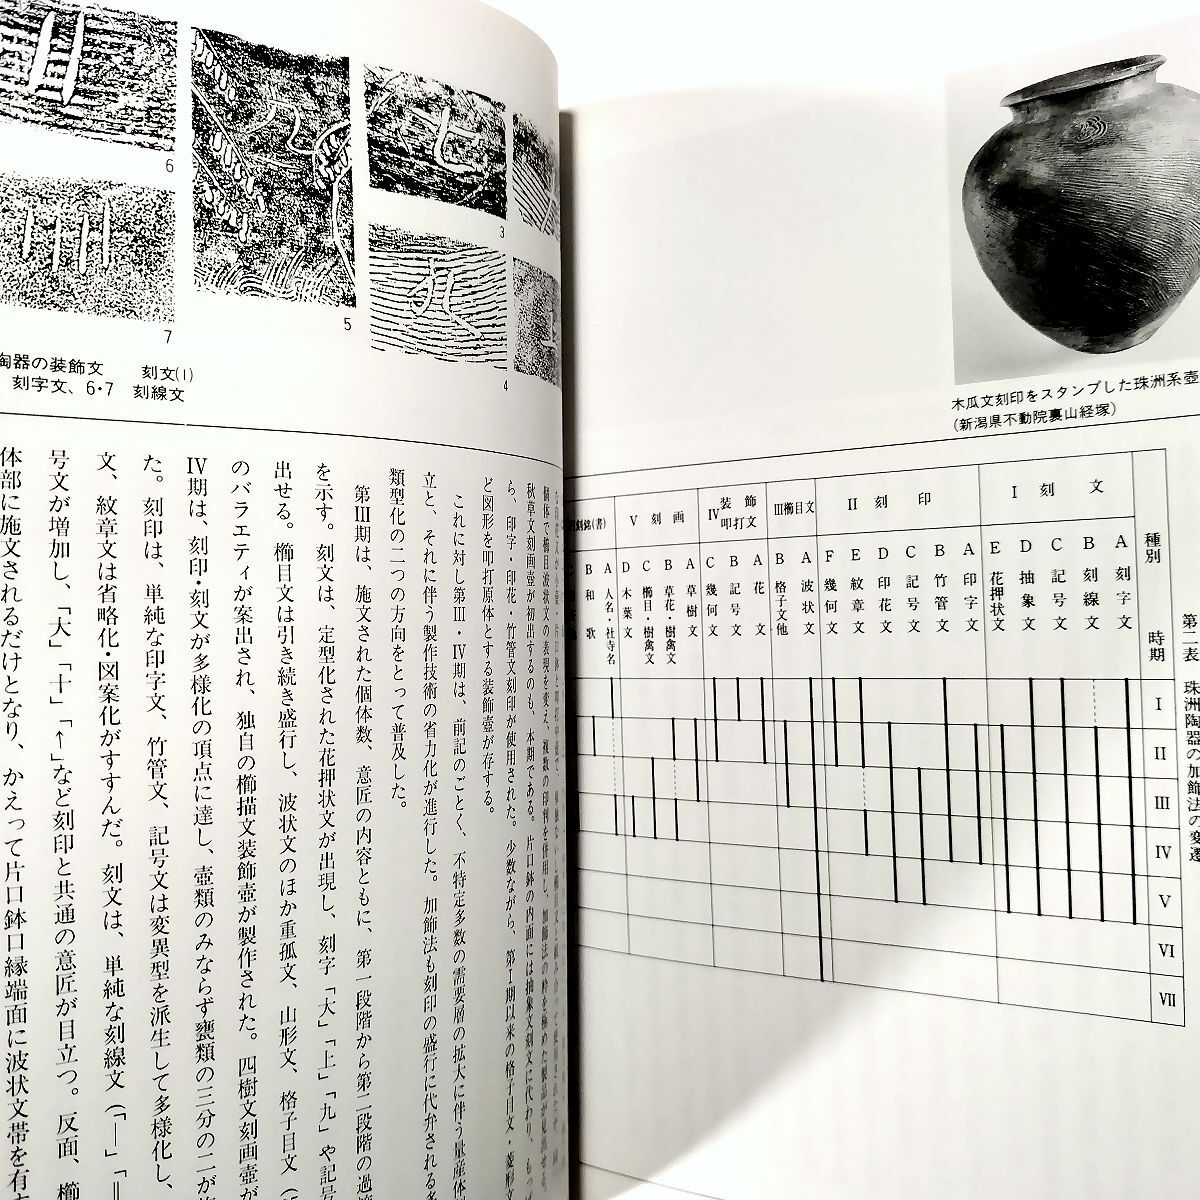 木瓜文刻印をスタンプした珠洲系壺
(新潟県不動院裏山経塚)
第二表 珠洲陶器の加飾法の変遷
種別
時期
Ⅰ 刻文
A 刻字文
B 刻線文
C 記号文
D 抽象文
E 花押状文
Ⅱ 刻印
A 印字文
B 竹管文
C 記号文
D 印花文
E 紋章文
F 幾何文
Ⅲ櫛目文
A 波状文
B 格子文他
Ⅳ 装飾叩打文
A 花文
B 記号文
C 幾何文
Ⅴ 刻画
A 草樹文
B 草花・樹禽文
C 櫛目・樹禽文
D 木葉文
刻銘(書)
A 人名・社寺名
B 和歌
Ⅰ
Ⅱ
Ⅲ
Ⅳ
Ⅴ
Ⅵ
Ⅶ
3
4
5
6
7
陶器の装飾文 刻文(1)
刻字文、6・7 刻線文
個体で櫛目波状文の表現を変え、複数の印判を併用し、加飾法の粋を極めた製品が見出せる。
秋草文刻画壺が初出するのも、本期である。片口鉢の内面には抽象文刻文に代わり、もっぱ
ら、印字・印花・竹管文刻印が使用された。少数ながら、第Ⅰ期以来の格子目文・菱形文
ど図形を叩打原体とする装飾壺が存する。
これに対し第Ⅲ・Ⅳ期は、前記のごとく、不特定多数の需要層の拡大に伴う量産体
立と、それに伴う製作技術の省力化が進行した。加飾法も刻印の盛行に代弁される多
類型化の二つの方向をとって普及した。
第Ⅲ期は、施文された個体数、意匠の内容ともに、第一段階から第二段階の過渡
を示す。刻文は、定型化された花押状文が出現し、刻字「大」「上」「九」や記号
出せる。櫛目文は引き続き盛行し、波状文のほか重孤文、山形文、格子目文(
のバラエティが案出され、独自の櫛描文装飾壺が製作された。四樹文刻画壺が
Ⅳ期は、刻印・刻文が多様化の頂点に達し、壺類のみならず甕類の三分の二が
た。刻印は、単純な印字文、竹管文、記号文は変異型を派生して多様化し、
文、紋章文は省略化・図案化がすすんだ。刻文は、単純な刻線文(「―」「∥
号文が増加し、「大」「十」「↑」など刻印と共通の意匠が目立つ。反面、櫛
体部に施文されるだけとなり、かえって片口鉢口縁端面に波状文帯を有す